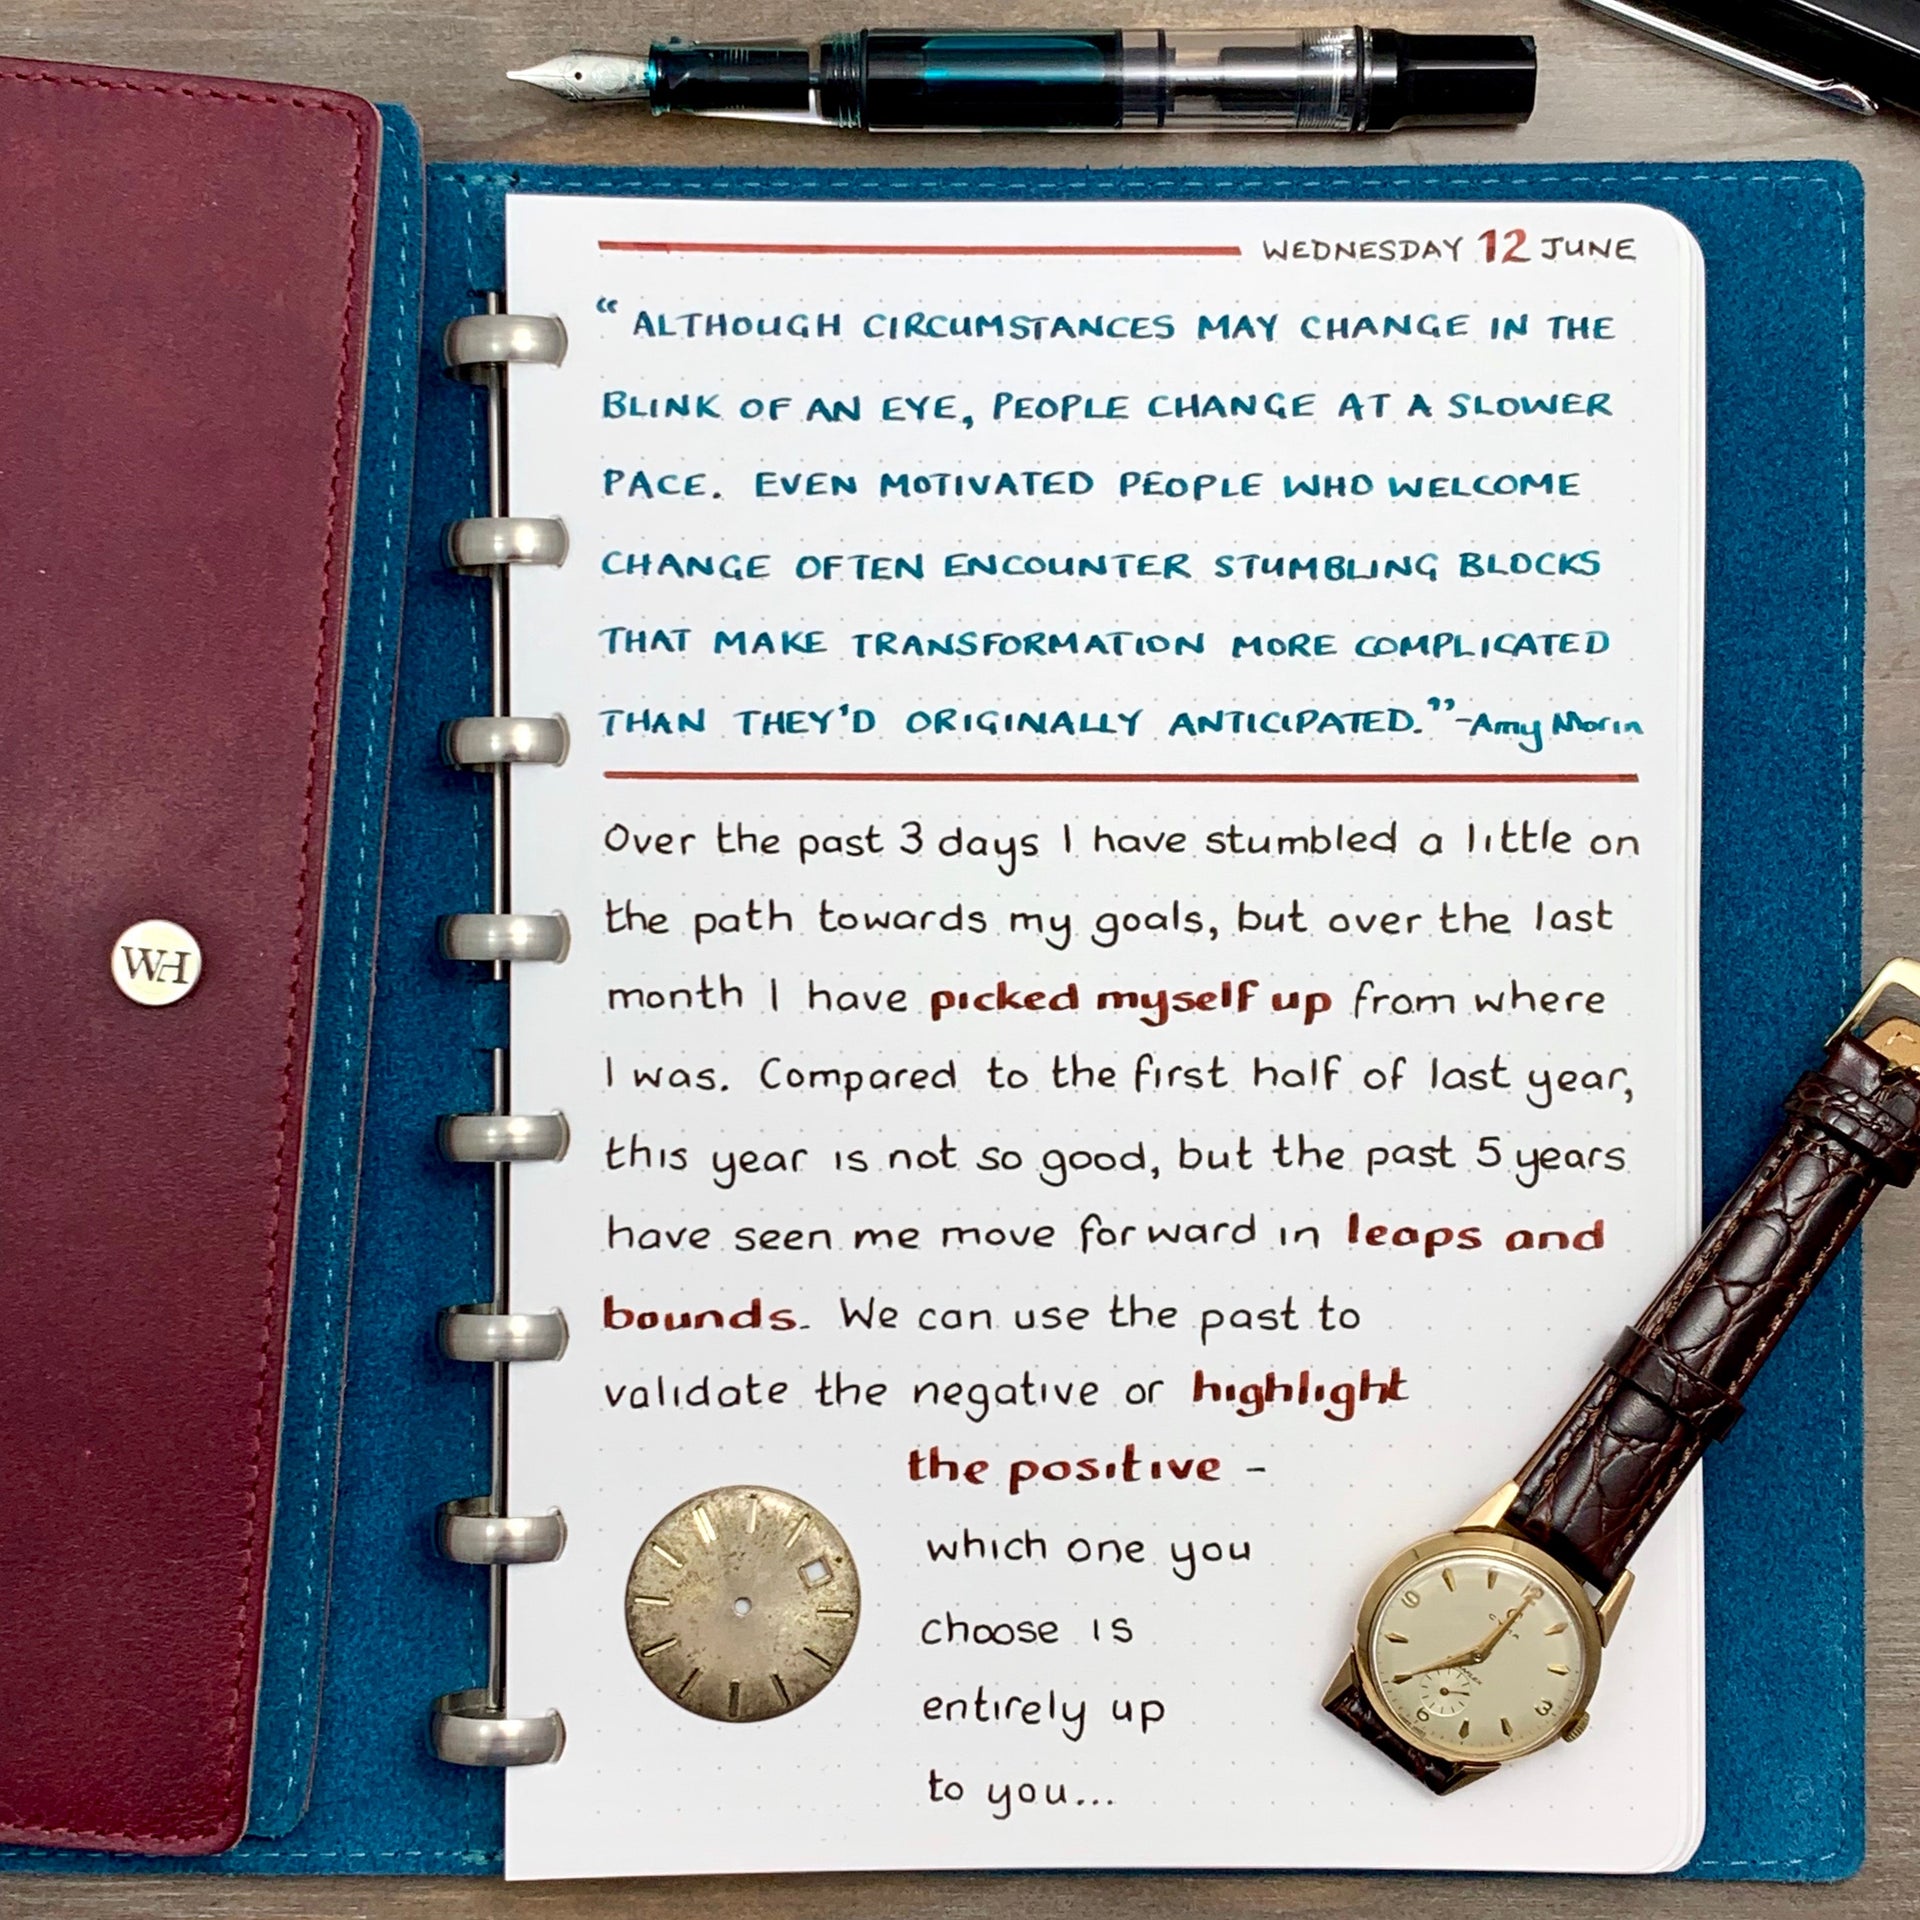 WEDNESDAY 12 JUNE
“ALTHOUGH CIRCUMSTANCES MAY CHANGE IN THE
BLINK OF AN EYE, PEOPLE CHANGE AT A SLOWER
PACE. EVEN MOTIVATED PEOPLE WHO WELCOME
CHANGE OFTEN ENCOUNTER STUMBLING BLOCKS
THAT MAKE TRANSFORMATION MORE COMPLICATED
THAN THEY'D ORIGINALLY ANTICIPATED.” -Amy Morin
Over the past 3 days I have stumbled a little on
the path towards my goals, but over the last
month I have picked myself up from where
I was. Compared to the first half of last year,
this year is not so good, but the past 5 years
have seen me move forward in leaps and
bounds. We can use the past to
validate the negative or highlight
the positive -
which one you
choose is
entirely up
to you...
WH
9
3
6